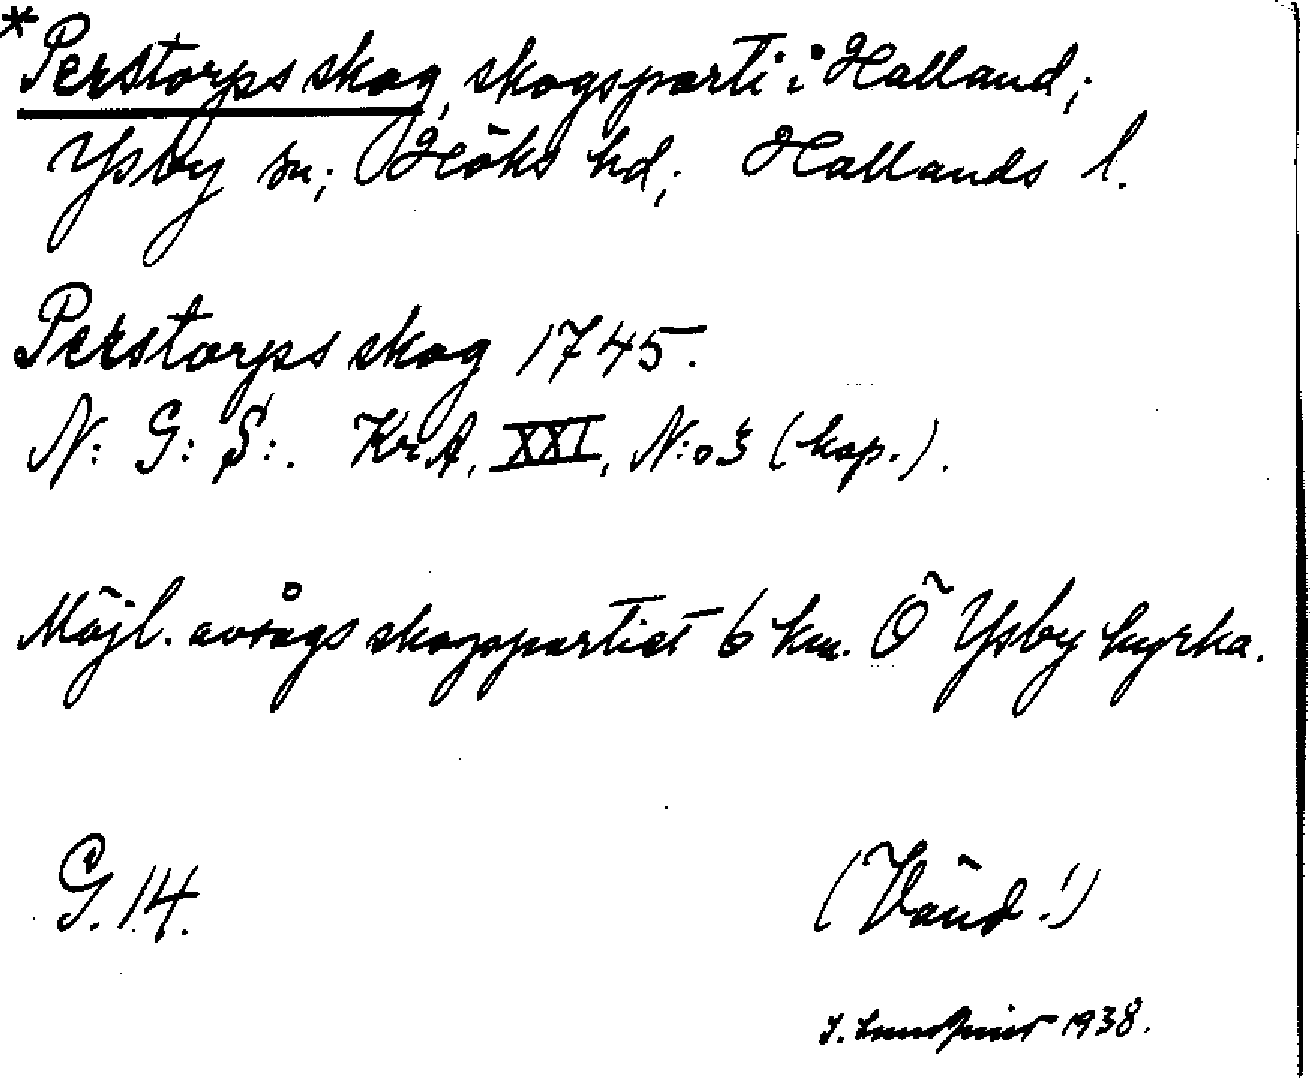 *Perstorps skog, skogsparti i Halland;
Ysby sn; Höks hd; Hallands l.
Perstorps skog 1745.
N: G: S:. KrA, XXI, N:o 3 (kop.).
Möjl. avsågs skogspartiet 6 km. Ö Ysby kyrka.
G. 14.
(Vänd!)
J. Lundqvist 1938.